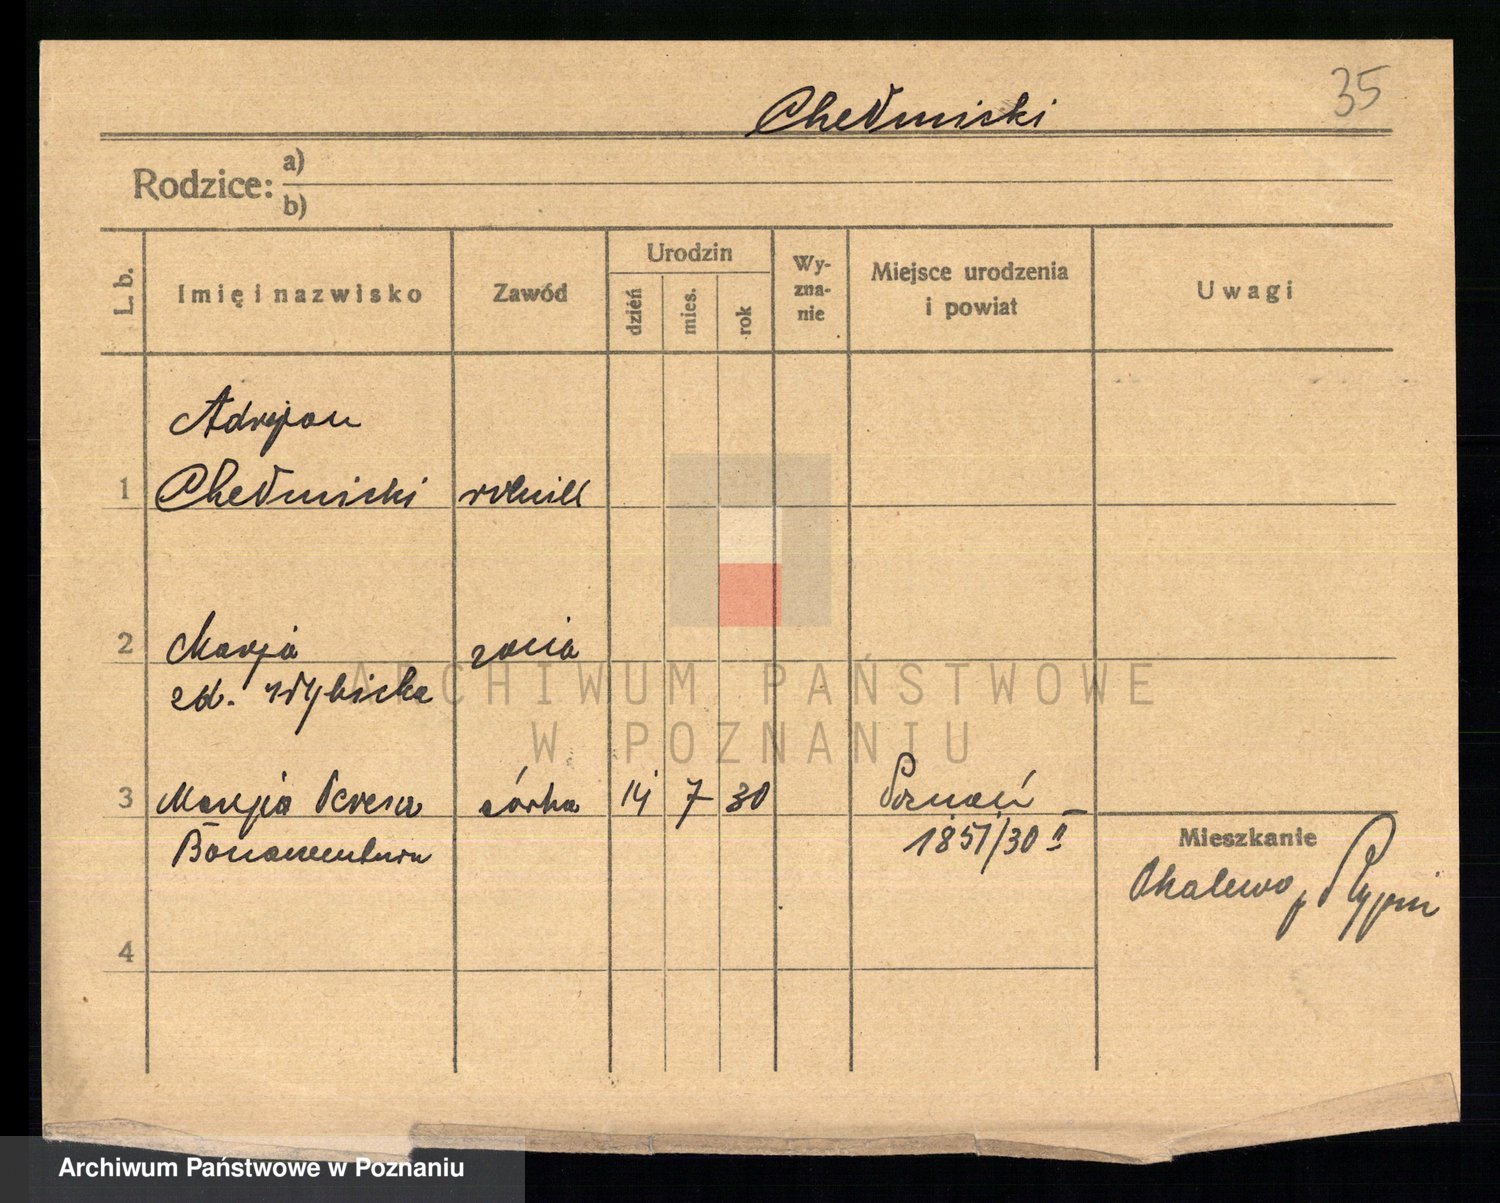 35
Chełmicki
Rodzice: a)
b)
L. b.
Imię i nazwisko
Zawód
Urodzin
dzień
mies.
rok
Wy-
zna-
nie
Miejsce urodzenia
i powiat
Uwagi
Adrjan
1 Chełmicki rolnik
2 Marja żona
zd. Wybicka
3 Marja Teresa córka 14 7 30 Poznań
Bonawentura 1851/30 II
Mieszkanie
Okalewo, p.
4
ARCHIWUM PAŃSTWOWE
W POZNANIU
Archiwum Państwowe w Poznaniu